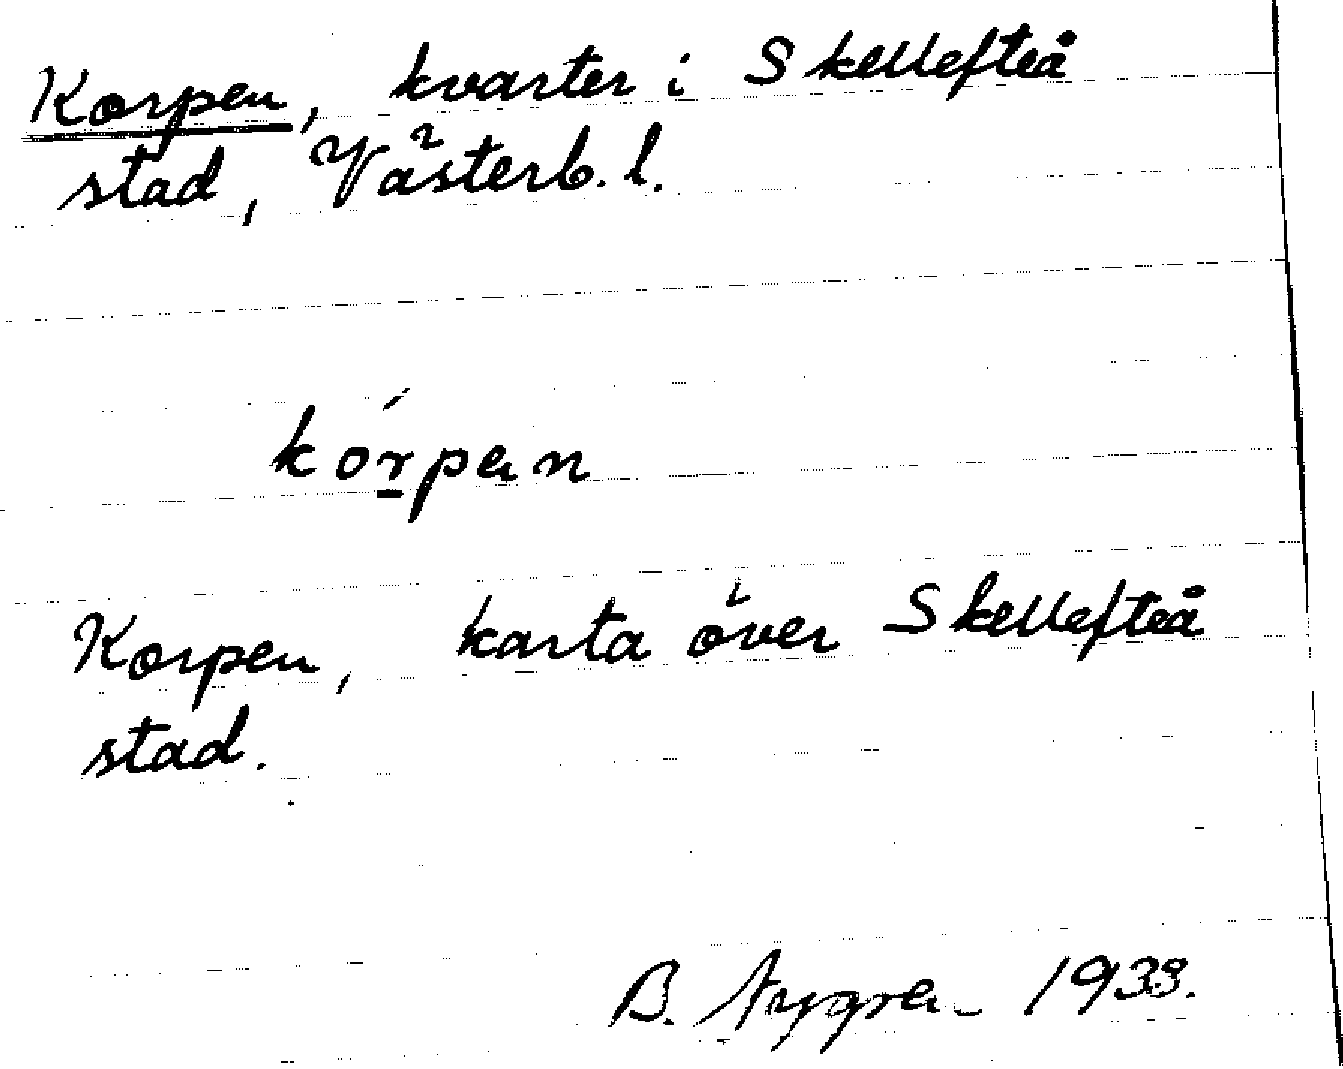 Korpen, kvarter i Skellefteå
stad, Västerb. l.
kórpan
Korpen, karta över Skellefteå
stad.
B. Nygren 1938.